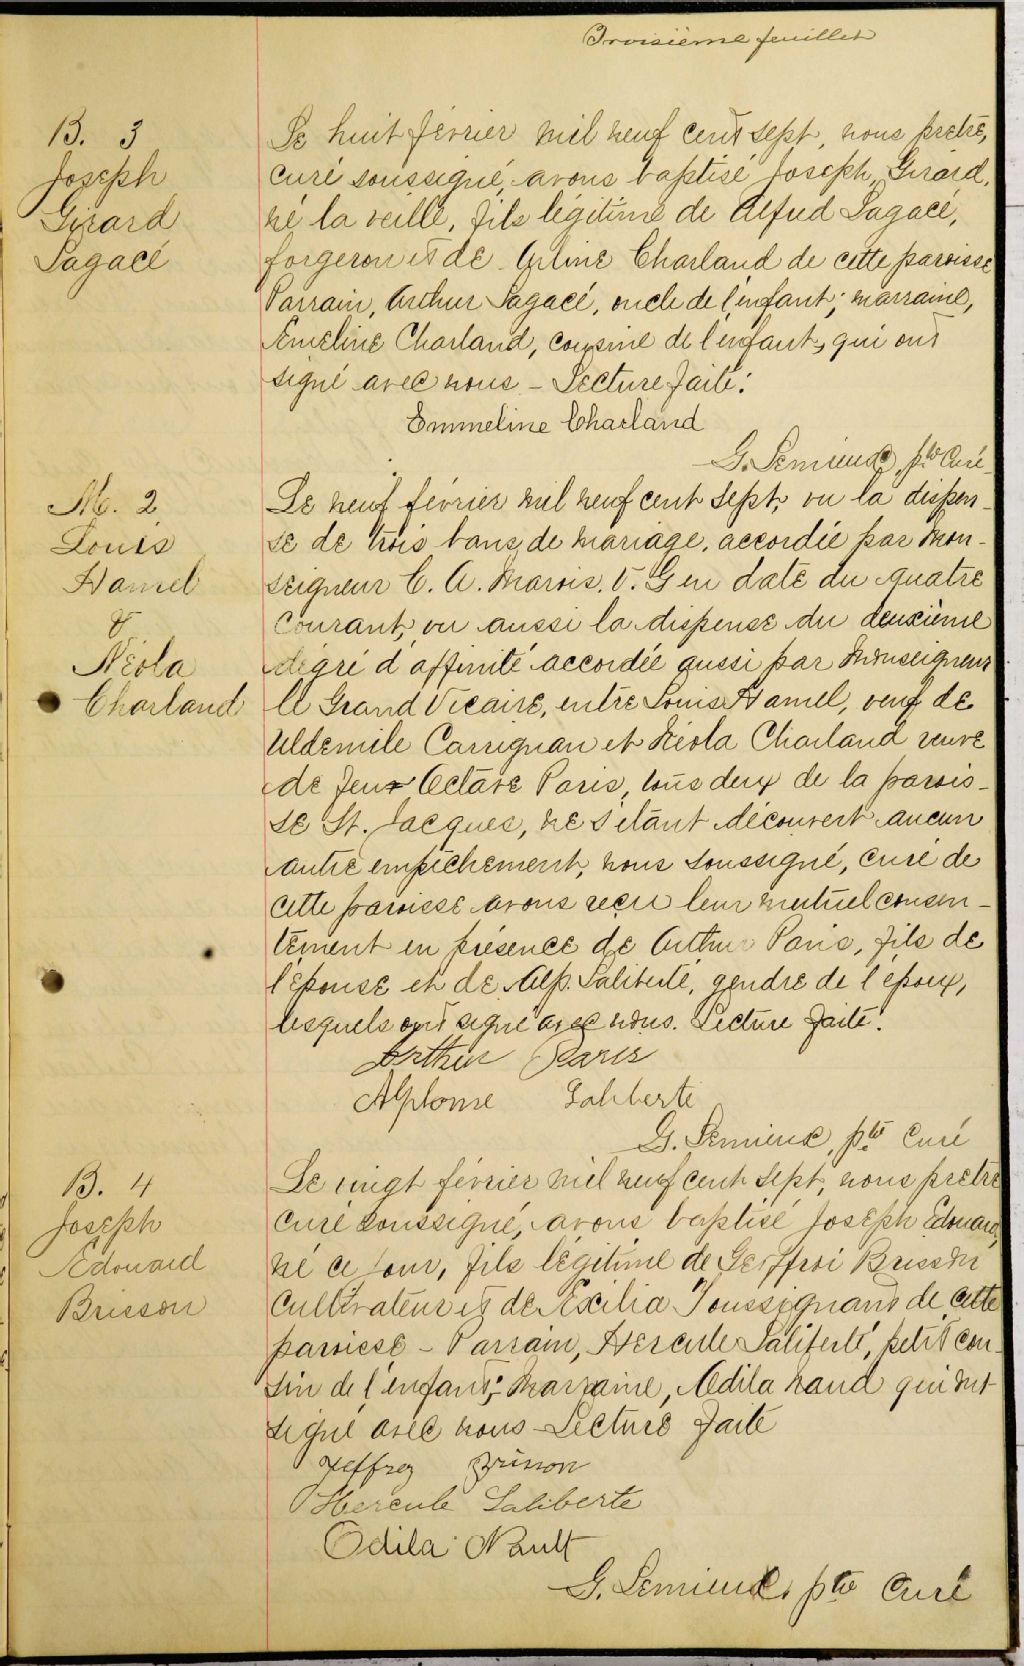 Troisième feuillet
B. 3
Joseph
Girard
Lagacé
Le huit février mil neuf cent sept, nous prêtre,
curé soussigné, avons baptisé Joseph, Girard,
né la veille, fils légitime de Alfred Lagacé,
forgeron et de Arline Charland de cette paroisse
Parrain, Arthur Lagacé, oncle de l'enfant; marraine,
Emeline Charland, cousine de l'enfant, qui ont
signé avec nous - Lecture faite.
Emmeline Charland
G. Lemieux, ptre Curé
M. 2
Louis
Hamel
&
Néola
Charland
Le neuf février mil neuf cent sept, vu la dispen-
se de trois bans de mariage, accordée par Mon-
seigneur C. A. Marois. V. G en date du quatre
courant, vu aussi la dispense du deuxième
dégré d'affinité accordée aussi par Monseigneur
le Grand Vicaire, entre Louis Hamel, veuf de
Uldémile Carrignan et Néola Charland veuve
de feu Octave Paris, tous deux de la parois-
se St. Jacques, ne s'étant découvert aucun
autre empêchement, nous soussigné, curé de
cette paroisse avons reçu leur mutuel consen-
tement en présence de Arthur Paris, fils de
l'épouse et de Alp. Laliberté, gendre de l'époux,
lesquels ont signé avec nous. Lecture faite.
Arthur Paris
Alphonse Laliberte
G. Lemieux, ptre Curé
B. 4
Joseph
Edouard
Brisson
Le vingt février mil neuf cent sept, nous prêtre
curé soussigné, avons baptisé Joseph Edouard,
né ce jour, fils légitime de Geoffroi Brisson
cultivateur et de Exilia Toussignant de cette
paroisse - Parrain, Hercule Laliberté, petit cou-
sin de l'enfant; Marraine, Odila Naud qui ont
signé avec nous - Lecture faite
Jeffrey Brisson
Hercule Laliberte
Odila Nault
G. Lemieux, ptre Curé